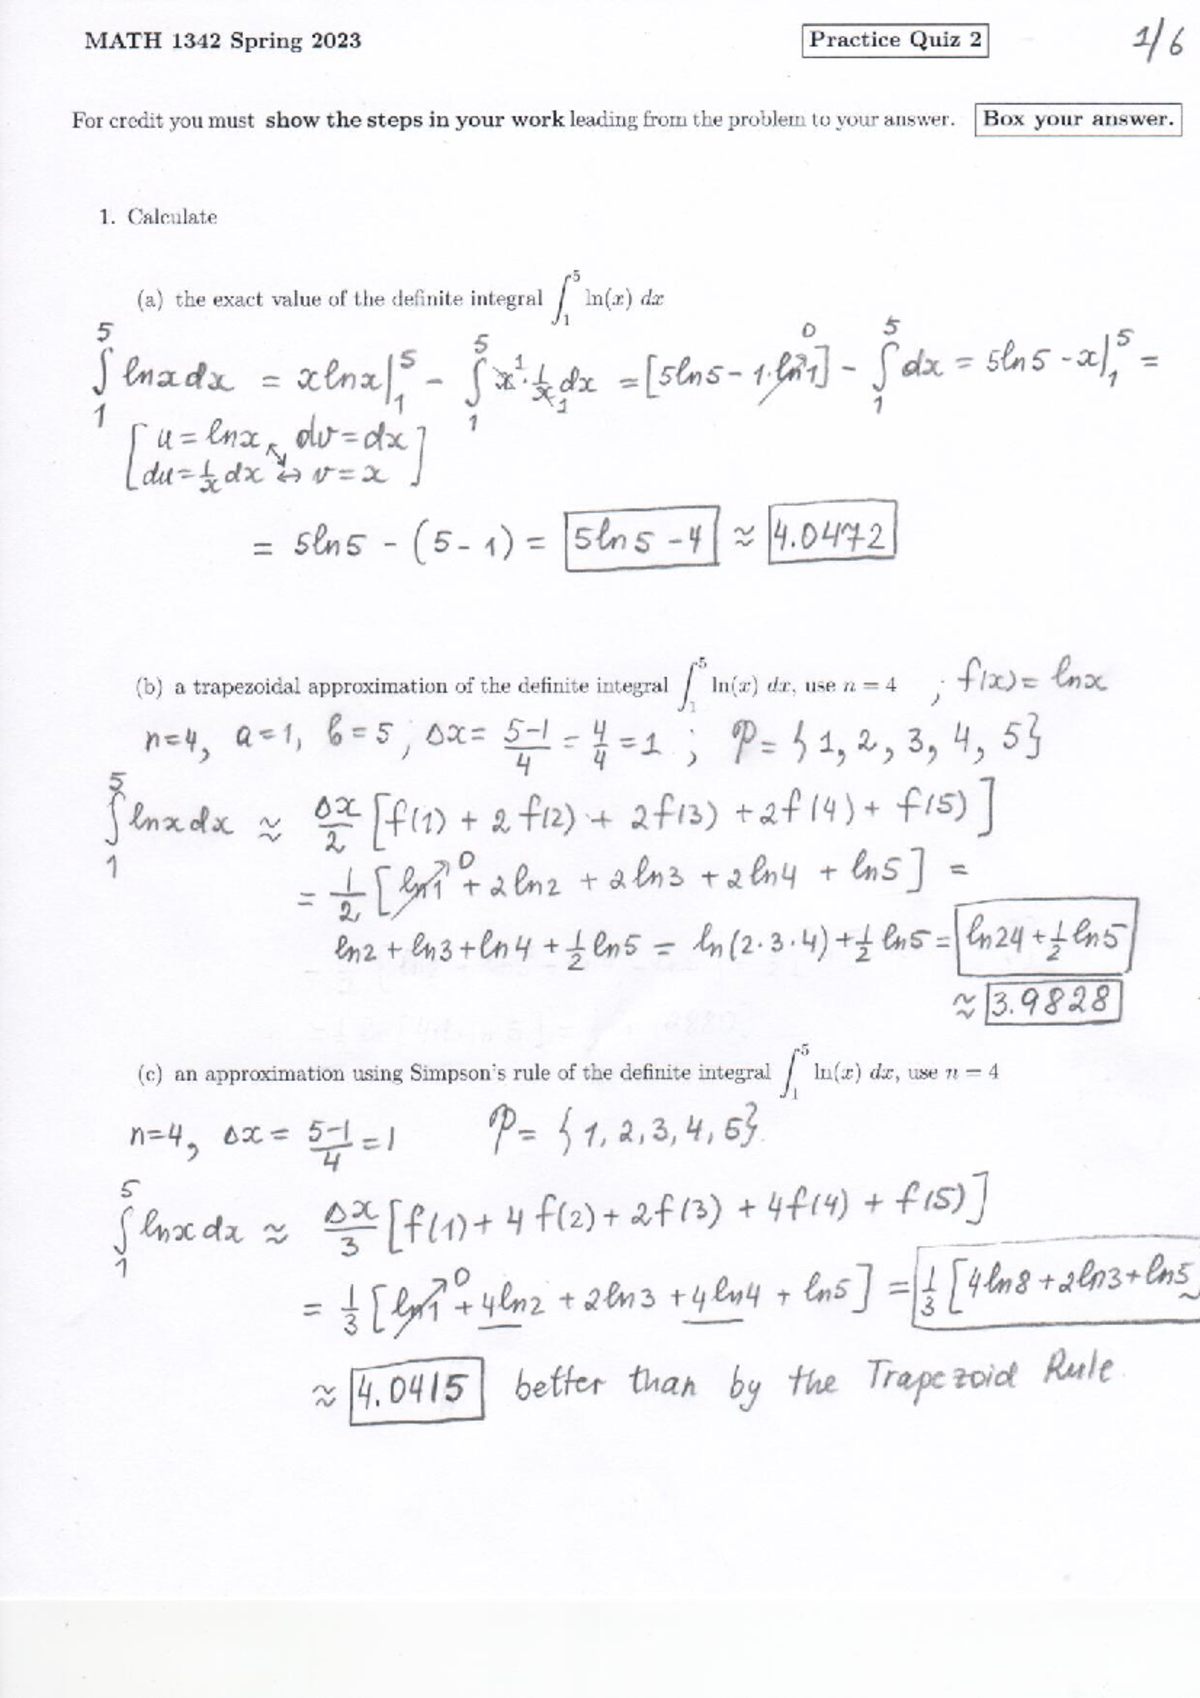 MATH 1342 Spring 2023 Practice Quiz 2 1/6
For credit you must show the steps in your work leading from the problem to your answer. Box your answer.
1. Calculate
(a) the exact value of the definite integral ∫₁⁵ ln(x) dx
∫₁⁵ lnx dx = x lnx|₁⁵ - ∫₁⁵ x¹·1/x₁ dx = [5ln5 - 1·ln1→0] - ∫₁⁵ dx = 5ln5 - x|₁⁵ =
[u = lnx dv = dx
du = 1/x dx ↔ v = x]
= 5ln5 - (5-1) = 5ln5 - 4 ≈ 4.0472
(b) a trapezoidal approximation of the definite integral ∫₁⁵ ln(x) dx, use n = 4 ; f(x) = lnx
n=4, a=1, b=5 ; Δx = 5-1/4 = 4/4 = 1 ; P = {1, 2, 3, 4, 5}
∫₁⁵ lnx dx ≈ Δx/2 [f(1) + 2f(2) + 2f(3) + 2f(4) + f(5)]
= 1/2 [ln1→0 + 2ln2 + 2ln3 + 2ln4 + ln5] =
ln2 + ln3 + ln4 + 1/2 ln5 = ln(2·3·4) + 1/2 ln5 = ln24 + 1/2 ln5
≈ 3.9828
(c) an approximation using Simpson's rule of the definite integral ∫₁⁵ ln(x) dx, use n = 4
n=4, Δx = 5-1/4 = 1 P = {1, 2, 3, 4, 5}
∫₁⁵ lnx dx ≈ Δx/3 [f(1) + 4f(2) + 2f(3) + 4f(4) + f(5)]
= 1/3 [ln1→0 + 4ln2 + 2ln3 + 4ln4 + ln5] = 1/3 [4ln8 + 2ln3 + ln5
≈ 4.0415 better than by the Trapezoid Rule.